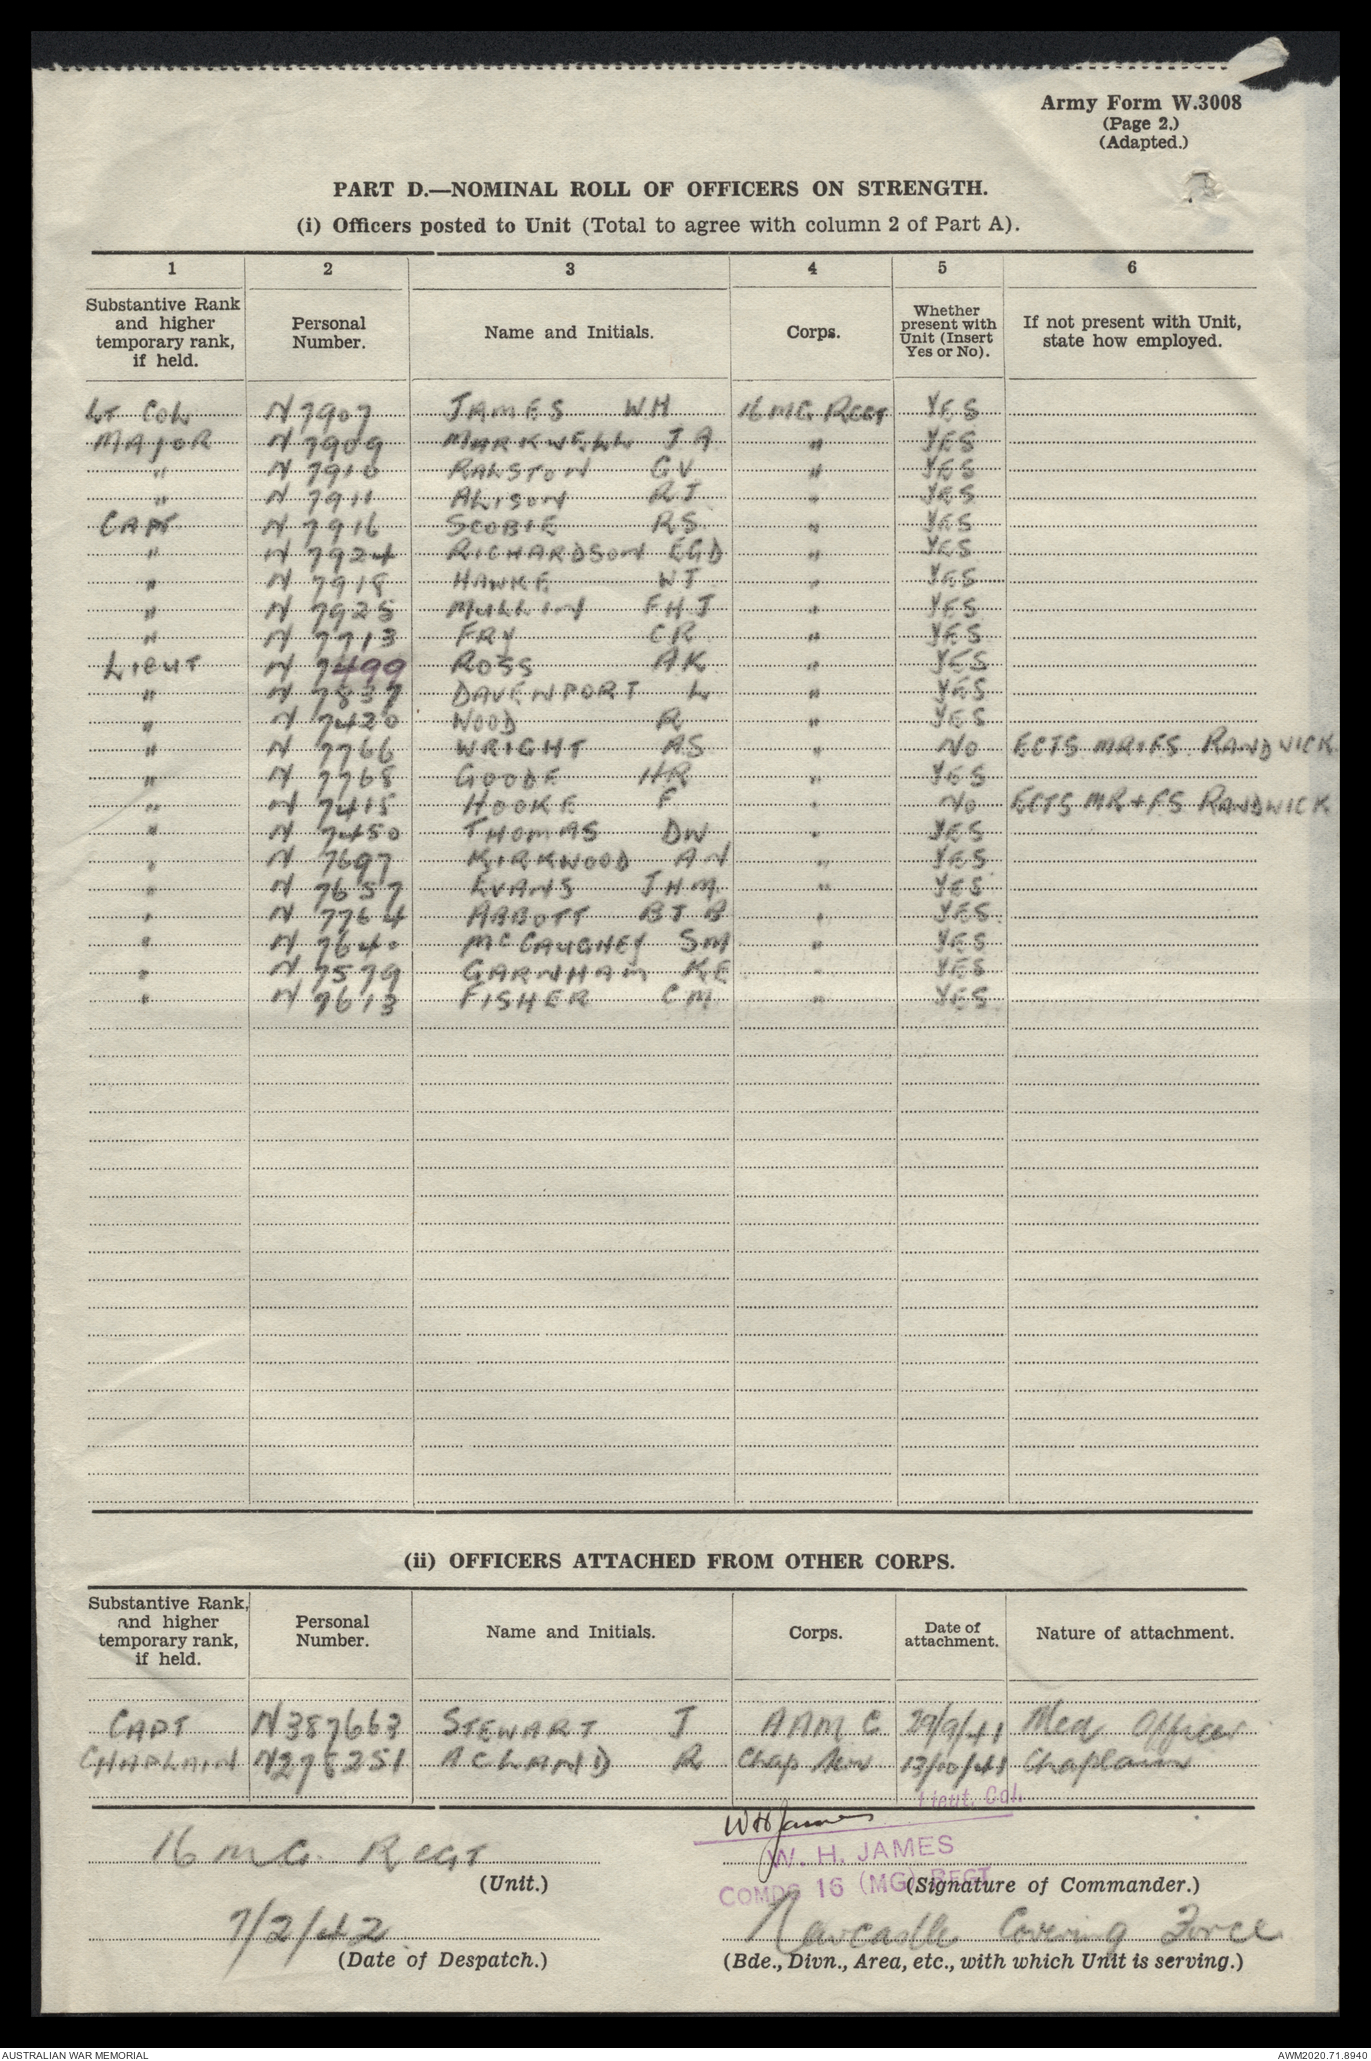 Army Form W.3008
(Page 2.)
(Adapted.)
PART D.—NOMINAL ROLL OF OFFICERS ON STRENGTH.
(i) Officers posted to Unit (Total to agree with column 2 of Part A).
1 2 3 4 5 6
Substantive Rank and higher temporary rank, if held. Personal Number. Name and Initials. Corps. Whether present with Unit (Insert Yes or No). If not present with Unit, state how employed.
LT COL N 7907 JAMES WH 16 MG REGT YES
MAJOR N 7909 MARKWELL JA " YES
" N 7910 RALSTON GV " YES
" N 7911 ALISON RJ " YES
CAPT N 7916 SCOBIE RS " YES
" N 7924 RICHARDSON EGD " YES
" N 7918 HAWKE WJ " YES
" N 7925 MULLIN FHJ " YES
" N 7713 FRY CR " YES
LIEUT N 7499 ROSS AK " YES
" N 7837 DAVENPORT L " YES
" N 7420 WOOD R " YES
" N 7766 WRIGHT AS " NO ECTS MR+FS RANDWICK
" N 7768 GOODE HR " YES
" N 7415 HOOKE F " NO ECTS MR+FS RANDWICK
" N 7450 THOMAS DW " YES
" N 7697 KIRKWOOD AN " YES
" N 7657 EVANS JHM " YES
" N 7764 ABBOTT BJB " YES
" N 7640 McCAUGHEY SM " YES
" N 7579 GARNHAM KE " YES
" N 7613 FISHER CM " YES
(ii) OFFICERS ATTACHED FROM OTHER CORPS.
Substantive Rank, and higher temporary rank, if held. Personal Number. Name and Initials. Corps. Date of attachment. Nature of attachment.
CAPT N387663 STEWART J AAMC 29/9/41 Med Officer
CHAPLAIN N278251 ACLAND R Chap 13/10/41 Chaplain
Lieut. Col.
WHJames
16 MG. REGT W. H. JAMES
(Unit.) COMDG 16 (MG) REGT (Signature of Commander.)
7/2/42 Newcastle Covering Force
(Date of Despatch.) (Bde., Divn., Area, etc., with which Unit is serving.)
AUSTRALIAN WAR MEMORIAL AWM2020.71.8940